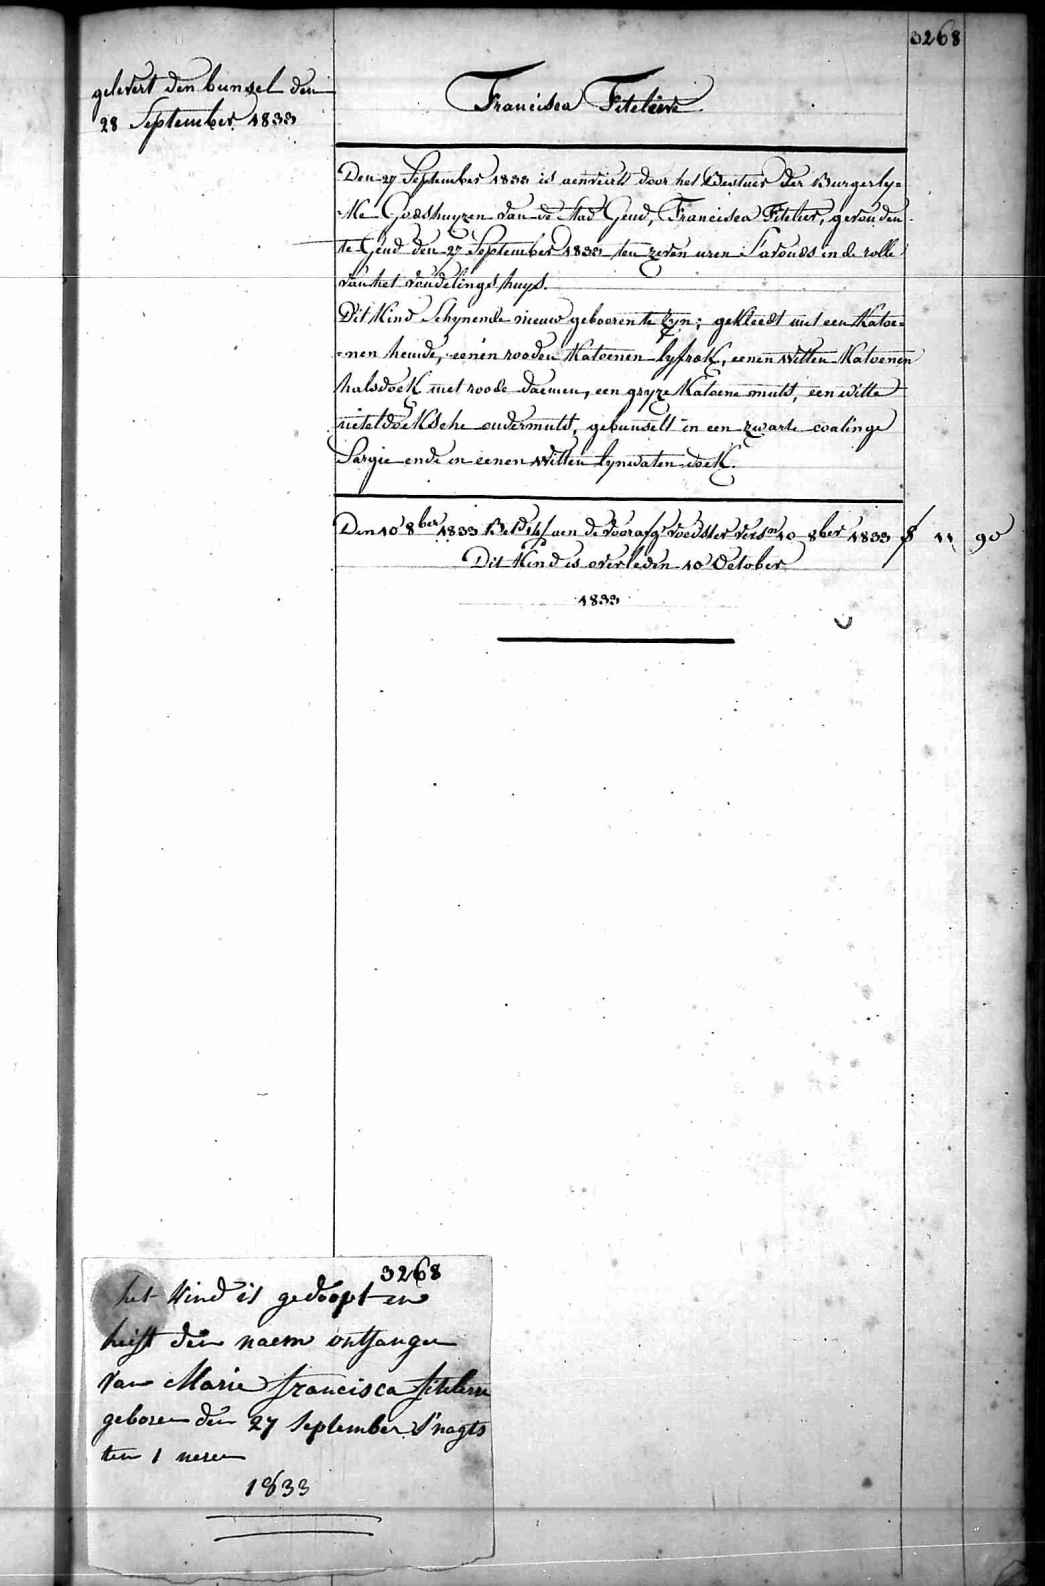 3268
gelevert den bunsel den
28 September 1833
Francisca Fiteleire
Den 27 September 1833 is aenveirt door het Bestuer der Burgerly=
ke Godshuyzen van de stad Gend, Francisca Fitelier, gevonden
te Gend den 27 September 1833 ten zeven uren s'avonds in de rolle
van het vondelingshuys.
Dit Kind schynende nieuw gebooren te zyn; gekleedt met een Katoe=
=nen hemde, eenen rooden Katoenen lyfrok, eenen witten Katoenen
halsdoek met roode daemen, een gryze Katoene muts, een witte
neteldoeksche ondermuts, gebunselt in een zwarte
Sargie ende in eenen witten lynwaten doek.
Den 10 8ber 1833 aen de voedster 10 8ber 1833 11 90
Dit Kind is overleden 10 October
1833
3268
het kind is gedoopt en
heift den naem ontfangen
van Marie francisca fitelere
geboren den 27 September s'nagts
ten 1 ueren
1833